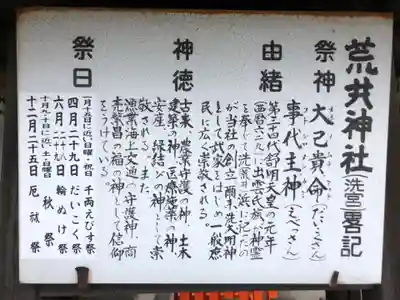 荒井神社(洗宮)畧記
祭神 大己貴命(だいこくさん)
事代主神(えべっさん)
由緒 第三十四代舒明天皇の元年
(西暦六二九)に出雲氏族が神霊
を奉じて洗荒井浜に祀たの
が当社の創立、爾来洗大明神
として武家をはじめ一般庶
民に広く崇敬される。
神徳 古来、農業守護の神、土木
建築の神、医療施薬の神、
安産、縁結びの神として崇
敬される。また
漁業海上交通の守護神、商
売繁昌の福の神として信仰
をうけている。
祭日 一月十五日に近い日曜・祝日 千両えびす祭
四月二十九日 だいこく祭
六月二十九日 輪ぬけ祭
十月九・十日に近い土・日曜 秋祭
十二月二十五日 厄祓祭